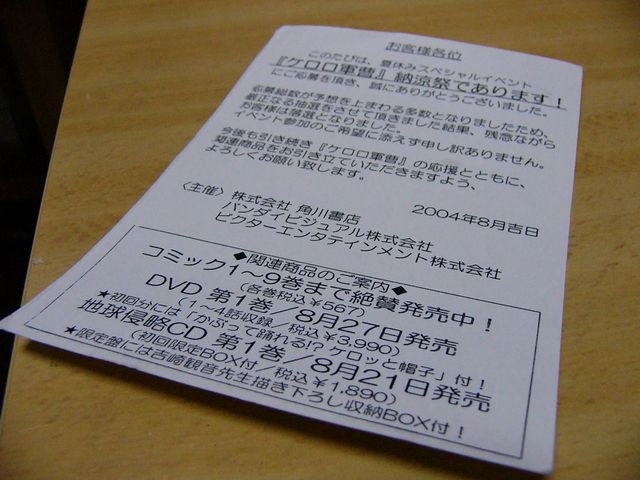 お客様各位
このたびは、夏休みスペシャルイベント
『ケロロ軍曹』納涼祭であります！
にご応募を頂き、誠にありがとうございました。
応募総数が予想を上まわる多数となりましたため、
厳正なる抽選をさせて頂きました結果、残念ながら
お客様は落選となりました。
イベント参加のご希望に添えず申し訳ありません。
今後も引き続き『ケロロ軍曹』の応援とともに、
関連商品をお引き立ていただきますよう、
よろしくお願い致します。
2004年8月吉日
〈主催〉株式会社 角川書店
バンダイビジュアル株式会社
ビクターエンタテインメント株式会社
◆関連商品のご案内◆
コミック1～9巻まで絶賛発売中！
（各巻税込￥567）
DVD 第1巻／8月27日発売
（1～4話収録／税込￥3,990）
★初回分には「かぶって踊れる!? ケロッと帽子」付！
地球侵略CD 第1巻／8月21日発売
（初回限定BOX付／税込￥1,890）
★限定盤には吉崎観音先生描き下ろし収納BOX付！